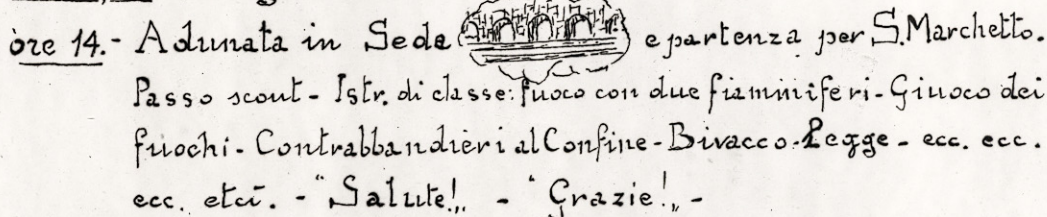 ore 14.- Adunata in Sede e partenza per S. Marchetto.
Passo scout - Istr. di classe: fuoco con due fiammiferi - Giuoco dei
fuochi - Contrabbandieri al Confine - Bivacco - Legge - ecc. ecc.
ecc. etci. - "Salute!„ - "Grazie!„ -